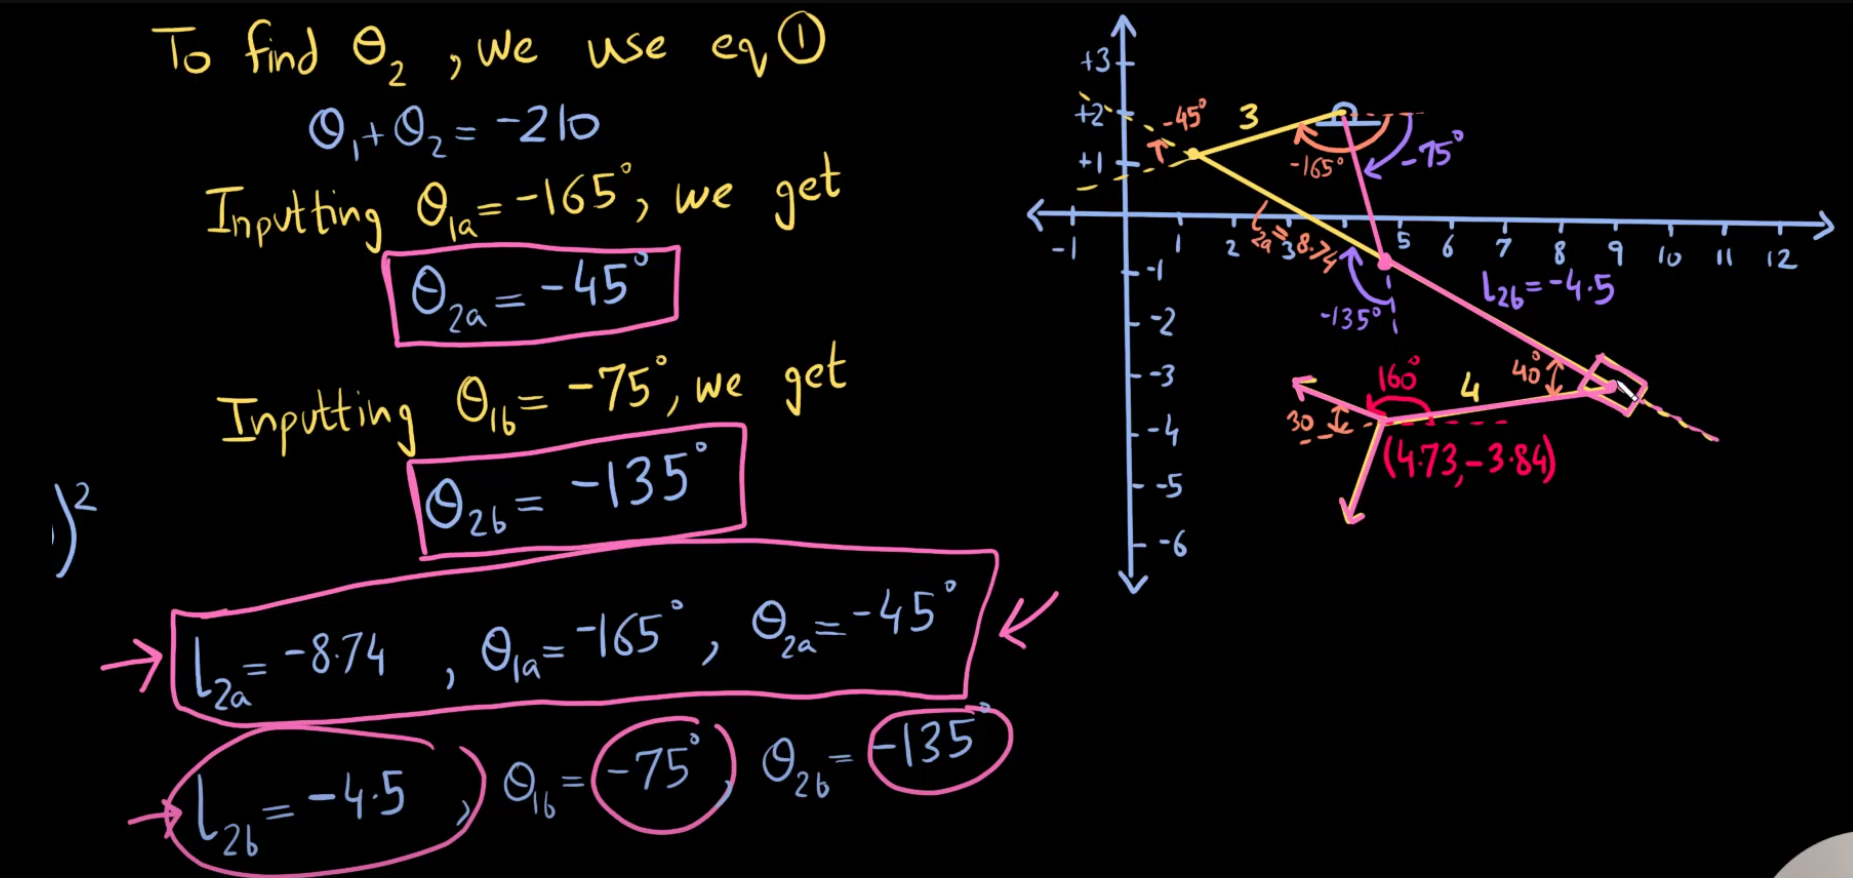 To find θ₂, we use eq ①
θ₁+θ₂ = -210
Inputting θ₁ₐ = -165°, we get
θ₂ₐ = -45°
Inputting θ₁b = -75°, we get
θ₂b = -135°
)²
l₂ₐ = -8.74 , θ₁ₐ = -165° , θ₂ₐ = -45°
l₂b = -4.5 , θ₁b = -75° , θ₂b = -135°
+3
+2
-45°
3
+1
-165°
-75°
-1 1 2 3 5 6 7 8 9 10 11 12
l₂ₐ = 8.74
-1
l₂b = -4.5
-135°
-2
-3
160°
4
40°
30
-4
(4.73, -3.84)
-5
-6